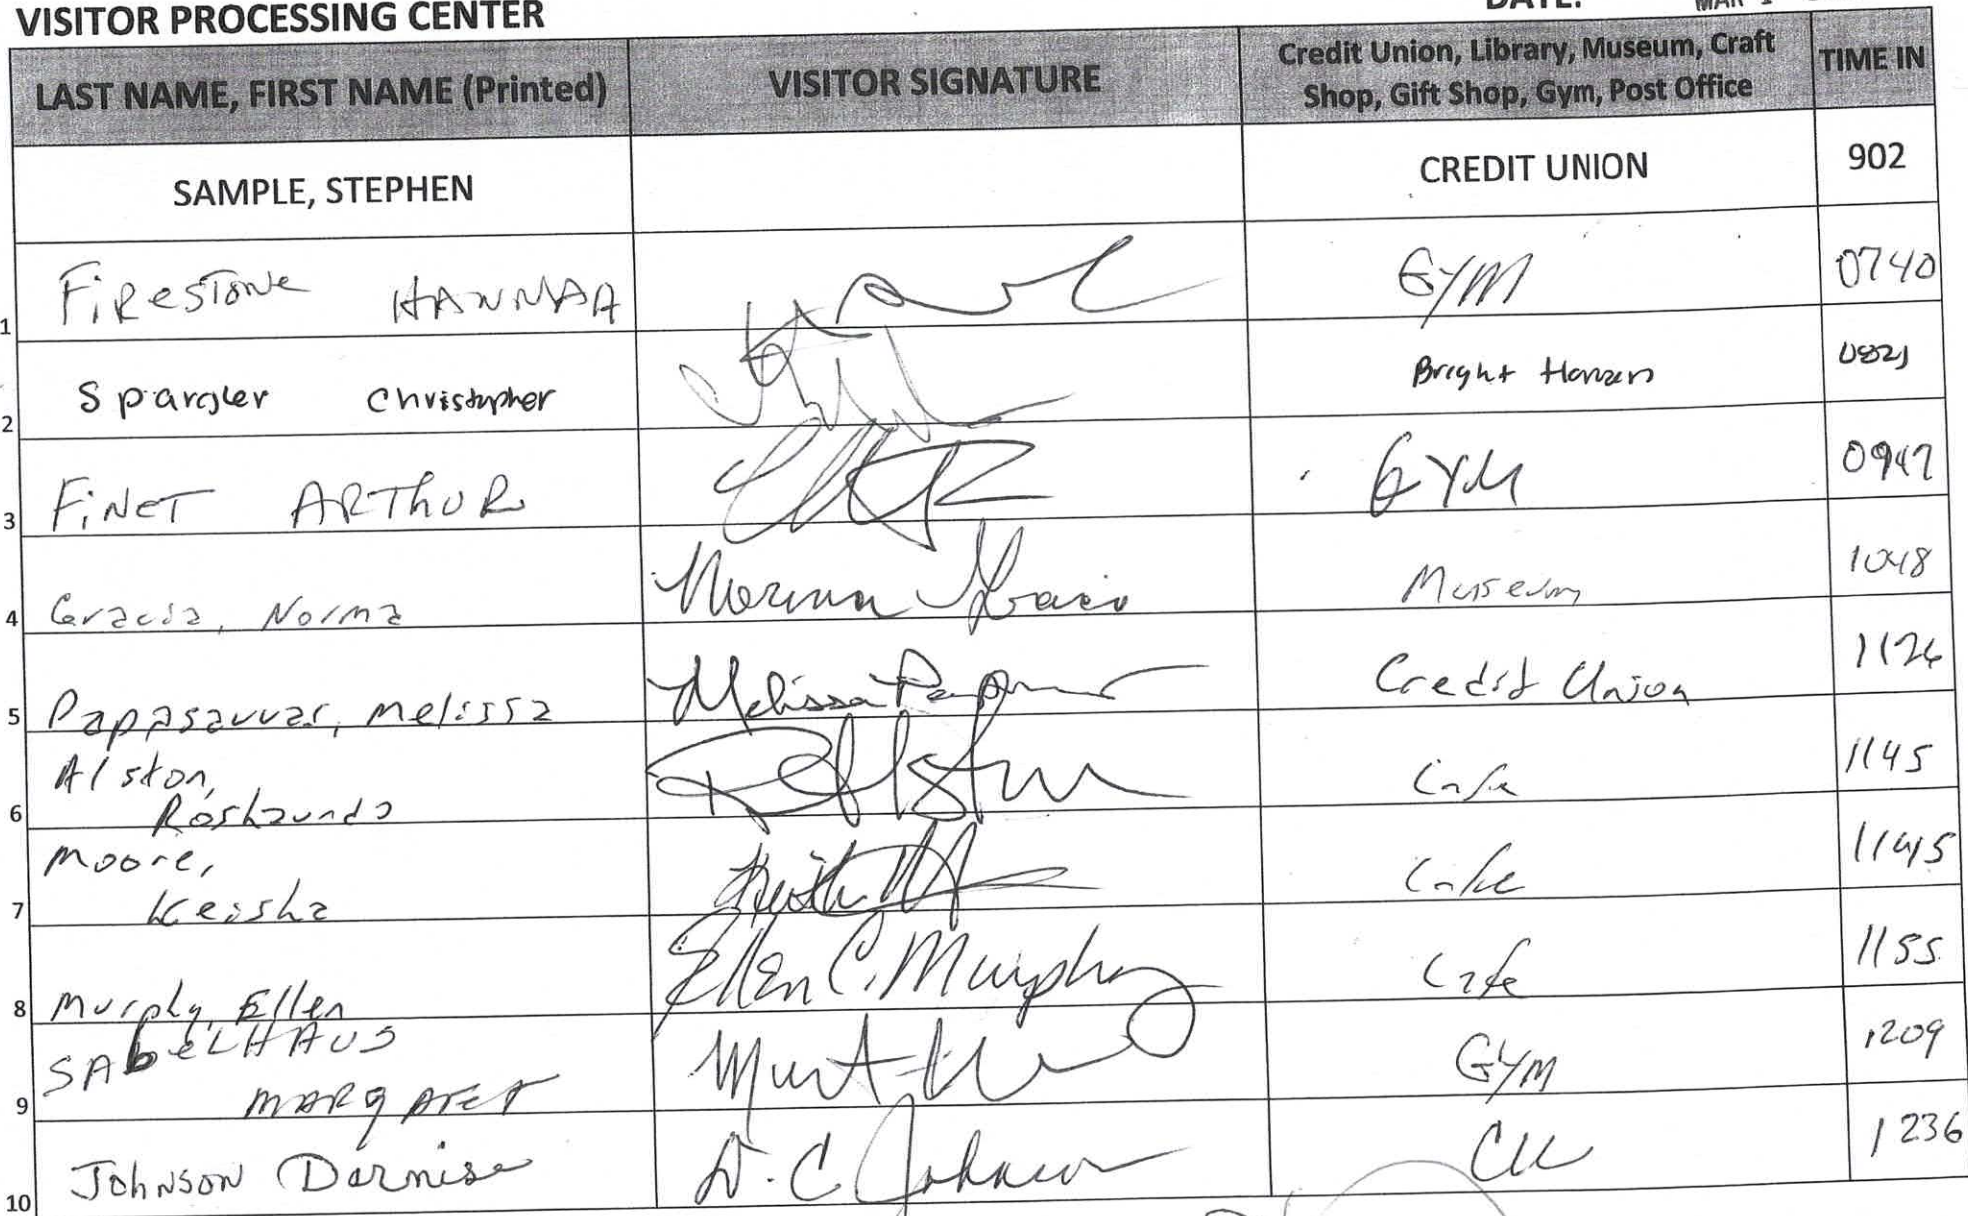 VISITOR PROCESSING CENTER
DATE: MAR 1
LAST NAME, FIRST NAME (Printed) VISITOR SIGNATURE Credit Union, Library, Museum, Craft Shop, Gift Shop, Gym, Post Office TIME IN
SAMPLE, STEPHEN CREDIT UNION 902
1 FiResTone HANNAA GYM 0740
2 Spargler Christopher Bright Horizons
3 FiNeT ARThUR GYM 0947
4 Gracia, Norma Norma Gracia Museum 1048
5 Papasavvas, Melissa Melissa Credit Union 1126
6 Alston, Roshaunda Cafe 1145
7 Moore, Keisha Cafe 1145
8 Murphy, Ellen Ellen C. Murphy Cafe 1155
9 SAbeLHAUS MARgAreT GYM 1209
10 JohNSoN Darnise D. C. Johnson CU 1236